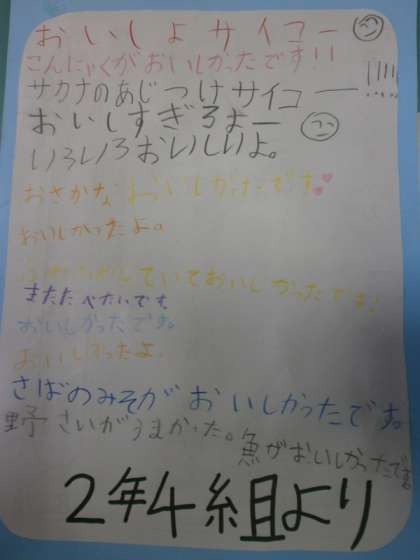 おいしょサイコー
こんにゃくがおいしかったです!!
サカナのあじつけサイコー!!!!
おいしすぎろよー
いろいろおいしいよ。
おさかなおいしかったです
おいしかったよ。
していておいしかったです!
またたべたいです。
おいしかったです。
おいしかったよ。
さばのみそがおいしかったです。
野さいがうまかった。
魚がおいしかったです
2年4組より